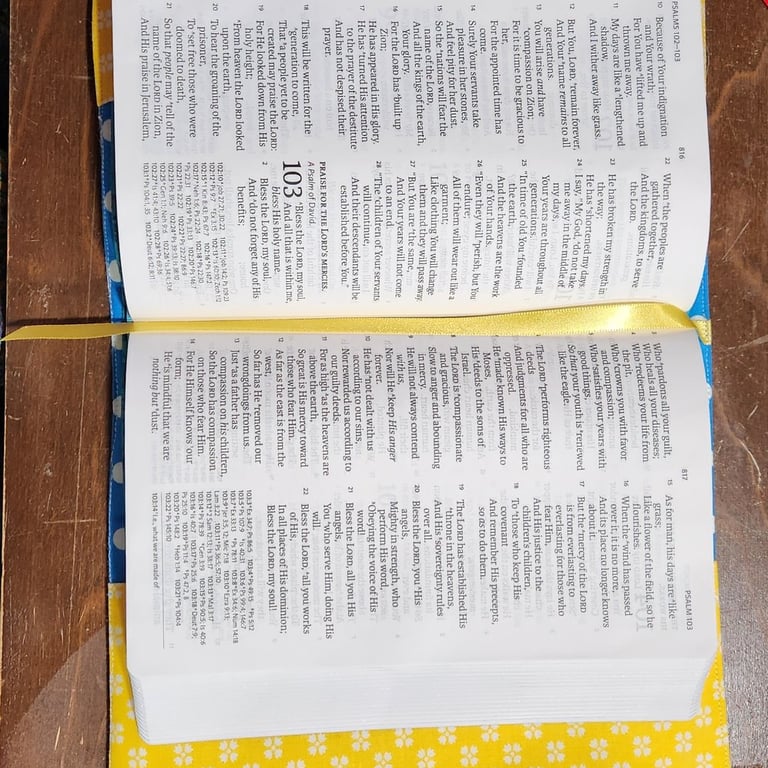 PSALMS 102–103
816
10 Because of Your indignation
and Your wrath;
For You have lifted me up and
thrown me away.
11 My days are like a lengthened
shadow,
And I wither away like grass.
12 But You, LORD, remain forever,
And Your name remains to all
generations.
13 You will arise and have
compassion on Zion;
For it is time to be gracious to
her,
For the appointed time has
come.
14 Surely Your servants take
pleasure in her stones,
And feel pity for her dust.
15 So the nations will fear the
name of the LORD,
And all the kings of the earth,
Your glory.
16 For the LORD has built up
Zion;
He has appeared in His glory.
17 He has turned His attention
to the prayer of the destitute
And has not despised their
prayer.
18 This will be written for the
generation to come,
That a people yet to be
created may praise the LORD:
19 For He looked down from His
holy height;
From heaven the LORD looked
upon the earth,
20 To hear the groaning of the
prisoner,
To set free those who were
doomed to death,
21 So that people may tell of the
name of the LORD in Zion,
And His praise in Jerusalem,
22 When the peoples are
gathered together,
And the kingdoms, to serve
the LORD.
23 He has broken my strength in
the way;
He has shortened my days.
24 I say, "My God, do not take
me away in the middle of
my days,
Your years are throughout all
generations.
25 "In time of old You founded
the earth,
And the heavens are the work
of Your hands.
26 "Even they will perish, but You
endure;
All of them will wear out like a
garment;
Like clothing You will change
them and they will pass away.
27 "But You are the same,
And Your years will not come
to an end.
28 "The children of Your servants
will continue,
And their descendants will be
established before You."
PRAISE FOR THE LORD'S MERCIES.
A Psalm of David.
103 Bless the LORD, my soul,
And all that is within me,
bless His holy name.
2 Bless the LORD, my soul,
And do not forget any of His
benefits;
817
PSALM 103
3 Who pardons all your guilt,
Who heals all your diseases;
4 Who redeems your life from
the pit,
Who crowns you with favor
and compassion;
5 Who satisfies your years with
good things,
So that your youth is renewed
like the eagle.
6 The LORD performs righteous
deeds
And judgments for all who are
oppressed.
7 He made known His ways to
Moses,
His deeds to the sons of
Israel.
8 The LORD is compassionate
and gracious,
Slow to anger and abounding
in mercy.
9 He will not always contend
with us,
Nor will He keep His anger
forever.
10 He has not dealt with us
according to our sins,
Nor rewarded us according to
our guilty deeds.
11 For as high as the heavens are
above the earth,
So great is His mercy toward
those who fear Him.
12 As far as the east is from the
west,
So far has He removed our
wrongdoings from us.
13 Just as a father has
compassion on his children,
So the LORD has compassion
on those who fear Him.
14 For He Himself knows our
form;
He is mindful that we are
nothing but dust.
15 As for man, his days are like
grass;
Like a flower of the field, so he
flourishes.
16 When the wind has passed
over it, it is no more,
And its place no longer knows
about it.
17 But the mercy of the LORD
is from everlasting to
everlasting for those who
fear Him,
And His justice to the
children's children,
18 To those who keep His
covenant
And remember His precepts,
so as to do them.
19 The LORD has established His
throne in the heavens,
And His sovereignty rules
over all.
20 Bless the LORD, you His
angels,
Mighty in strength, who
perform His word,
Obeying the voice of His
word!
21 Bless the LORD, all you His
angels,
You who serve Him, doing His
will.
22 Bless the LORD, all you works
of His,
In all places of His dominion;
Bless the LORD, my soul!